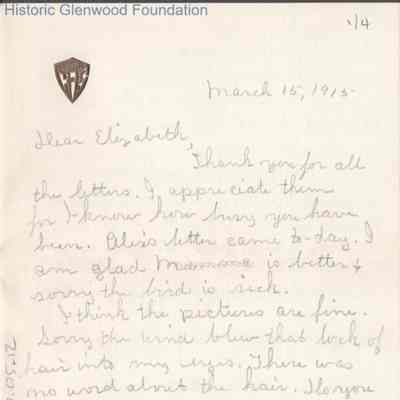 Historic Glenwood Foundation
1/4
March 15, 1915
Dear Elizabeth,
Thank you for all
the letters. I appreciate them
for I know how busy you have
been. Alix's letter came to-day. I
am glad Mamma is better &
sorry the bird is sick.
I think the pictures are fine.
Sorry the wind blew that lock of
hair into my eyes. There was
no word about the hair. I love you